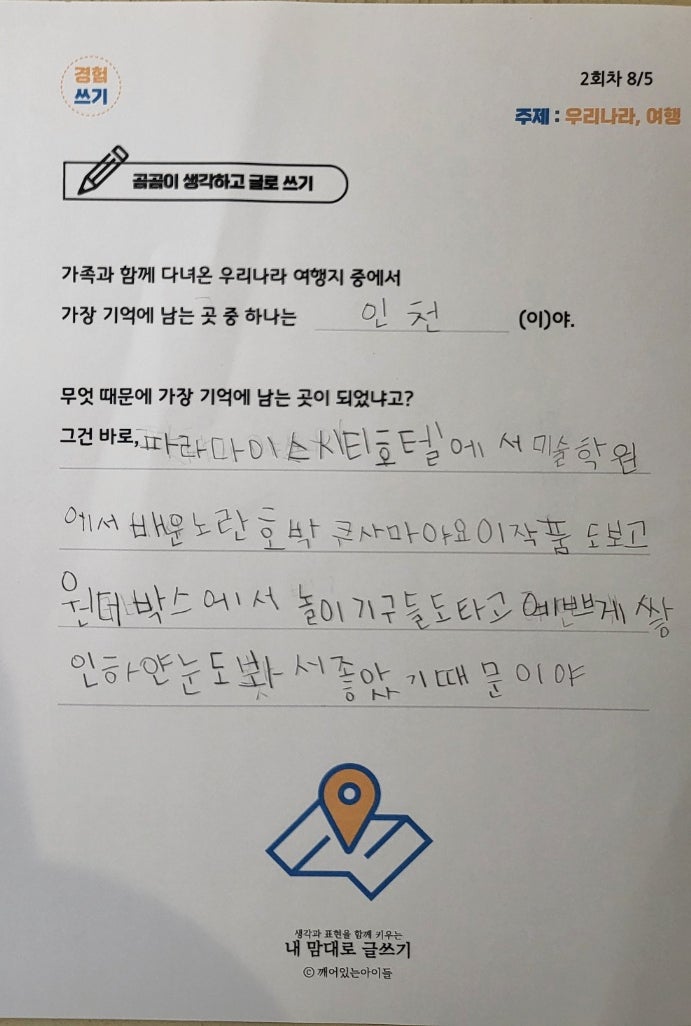 경험
쓰기
2회차 8/5
주제 : 우리나라, 여행
곰곰이 생각하고 글로 쓰기
가족과 함께 다녀온 우리나라 여행지 중에서
가장 기억에 남는 곳 중 하나는 인천 (이)야.
무엇 때문에 가장 기억에 남는 곳이 되었냐고?
그건 바로, 파라다이스시티호텔에서 미술학원
에서 배운 노란 호박 쿠사마야요이 작품도 보고
원더박스에서 놀이기구들도 타고 예쁘게 쌓
인 하얀 눈도 봤서 좋았기 때문이야
생각과 표현을 함께 키우는
내 맘대로 글쓰기
ⓒ 깨어있는아이들